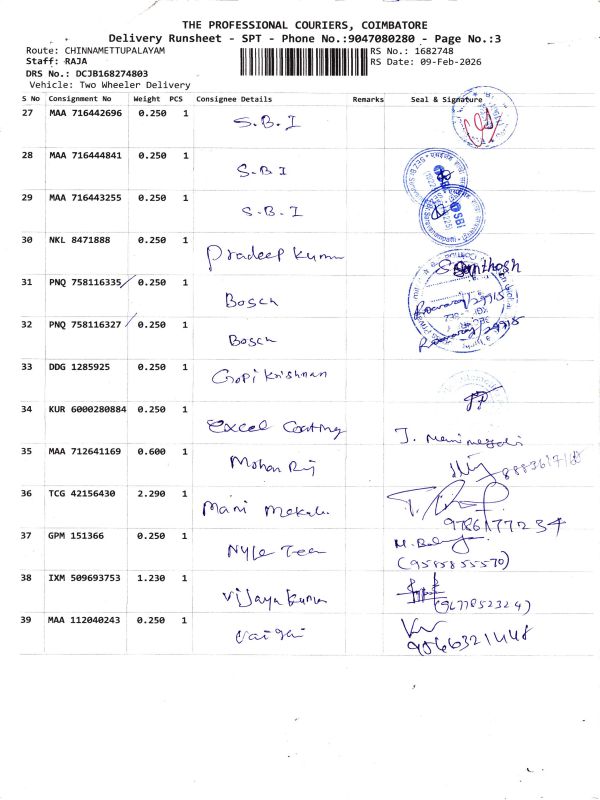 THE PROFESSIONAL COURIERS, COIMBATORE
Delivery Runsheet - SPT - Phone No.:9047080280 - Page No.:3
Route: CHINNAMETTUPALAYAM RS No.: 1682748
Staff: RAJA RS Date: 09-Feb-2026
DRS No.: DCJB168274803
Vehicle: Two Wheeler Delivery
S No Consignment No Weight PCS Consignee Details Remarks Seal & Signature
27 MAA 716442696 0.250 1 S.B.I
28 MAA 716444841 0.250 1 S.B.I
29 MAA 716443255 0.250 1 S.B.I
SBI
30 NKL 8471888 0.250 1 Pradeep Kumar Santhosh
31 PNQ 758116335 0.250 1 Bosch
32 PNQ 758116327 0.250 1 Bosch
33 DDG 1285925 0.250 1 Gopi Krishnan
34 KUR 6000280884 0.250 1 Excel Coating
35 MAA 712641169 0.600 1 Mohan Raj
36 TCG 42156430 2.290 1 Mani 9786177234
37 GPM 151366 0.250 1 Nyle M.
(9585855570)
38 IXM 509693753 1.230 1 Vijaya Kumar
39 MAA 112040243 0.250 1 Vaigai
9566321448